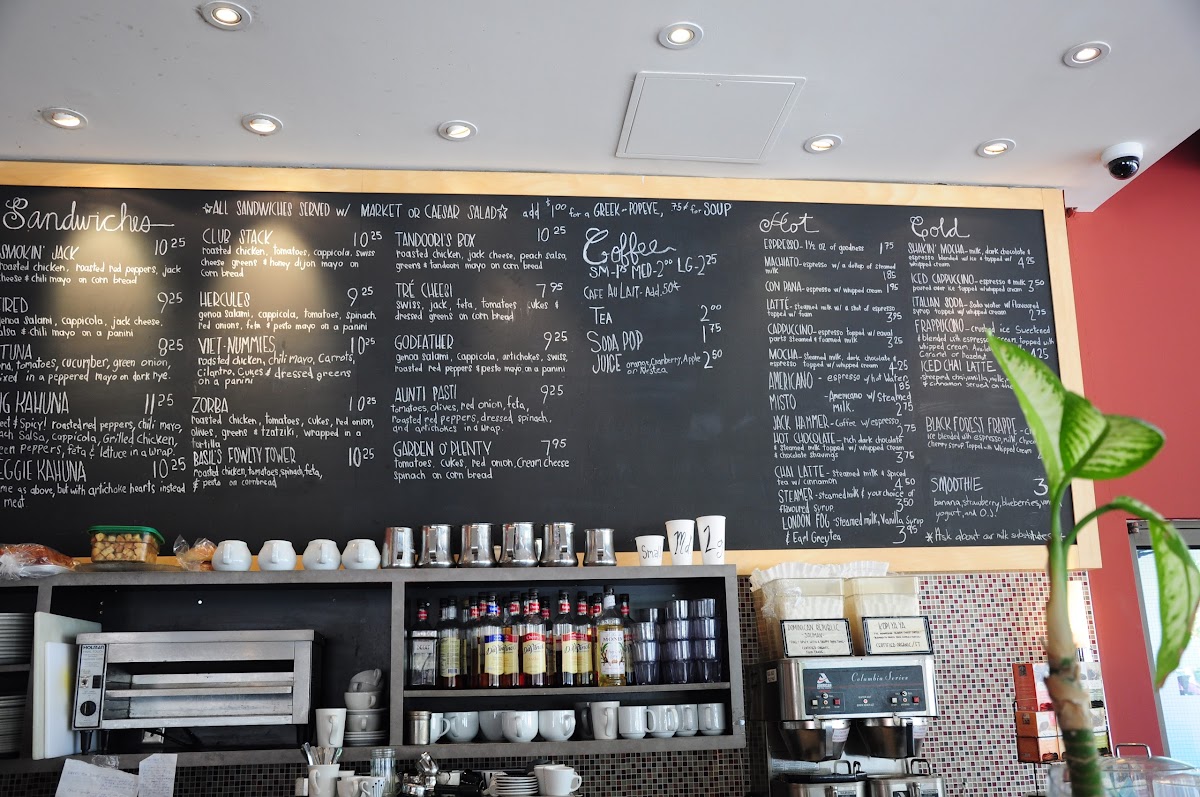 Sandwiches
☆ALL SANDWICHES SERVED w/ MARKET or CAESAR SALAD☆ add $1.00 for a GREEK-POPEYE, .75¢ for SOUP
SMOKIN' JACK 10 25
roasted chicken, roasted red peppers, jack
cheese & chili mayo on corn bread
9 25
genoa salami, cappicola, jack cheese,
& chili mayo
TUNA 8 25
tomatoes, cucumber, green onion,
in a peppered mayo on dark rye.
KAHUNA 11 25
& Spicy! roasted red peppers, chili mayo,
Salsa, cappicola, Grilled chicken,
Peppers, feta & lettuce in a wrap.
KAHUNA 10 25
as above, but with artichoke hearts instead
meat
CLUB STACK 10 25
roasted chicken, tomatoes, cappicola, swiss
cheese greens & honey dijon mayo on
corn bread
HERCULES 9 25
genoa salami, cappicola, tomatoes, spinach,
red onions, feta & pesto mayo on a panini
VIET-NUMMIES 10 25
roasted chicken, chili mayo, Carrots,
Cilantro, Cukes & dressed greens
on a panini
ZORBA 10 25
roasted chicken, tomatoes, cukes, red onion,
olives, greens & tzatziki, wrapped in a
tortilla
BASIL'S FOWLTY TOWER 10 25
roasted chicken, tomatoes, spinach, feta,
& pesto on cornbread
TANDOORI'S BOX 10 25
roasted chicken, jack cheese, peach salsa,
greens & tandoori mayo on corn bread
TRÉ CHEESI 7 95
swiss, jack, feta, tomatoes, cukes &
dressed greens on corn bread
GODFATHER 9 25
genoa salami, cappicola, artichokes, swiss,
roasted red peppers & pesto mayo on a panini
AUNTI PASTI 9 25
tomatoes, olives, red onion, feta,
roasted red peppers, dressed spinach,
and artichokes in a wrap.
GARDEN O'PLENTY 7 95
tomatoes, cukes, red onion, Cream Cheese
spinach on corn bread
Coffee
SM-1 75 MED-2 00 LG-2 25
CAFE AU LAIT-Add .50¢
TEA 2 00
SODA POP 1 75
JUICE orange, Cranberry, Apple 2 50
or Nestea
Hot
ESPRESSO-1½ oz. of goodness 1 75
MACHIATO-espresso w/ a dollop of steamed
milk 1 85
CON PANA-espresso w/ whipped cream 1 95
LATTÉ-steamed milk w/ a shot of espresso
topped w/ foam 3 25
CAPPUCCINO-espresso topped w/ equal
parts steamed & foamed milk 3 25
MOCHA-steamed milk, dark chocolate &
espresso topped w/ whipped cream 4 25
AMERICANO - espresso w/ hot water 1 85
MISTO -Americano w/ Steamed
milk. 2 75
JACK HAMMER-Coffee w/ espresso 2 75
HOT CHOCOLATE-rich dark chocolate
& steamed milk topped w/ whipped cream
& chocolate shavings 3 75
CHAI LATTE-steamed milk & spiced
tea w/ cinnamon 4 50
STEAMER-steamed milk & your choice of
flavoured syrup 3 50
LONDON FOG-Steamed milk, Vanilla Syrup
& Earl Grey tea 3 95
Cold
SHAKIN' MOCHA-milk, dark chocolate &
espresso blended w/ ice & topped w/
whipped cream 4 25
ICED CAPPUCCINO-espresso & milk
poured over ice topped w/ whipped cream 3 50
ITALIAN SODA-Soda water w/ flavoured
syrup w/ whipped cream 2 75
FRAPPUCCINO-crushed ice Sweetened
& blended with espresso topped with
whipped cream.
Caramel or hazelnut 4 25
ICED CHAI LATTE
steeped chai, vanilla, milk
& cinnamon served on
BLACK FOREST FRAPPE
ice blended with espresso, milk
cherry syrup. Topped with Whipped Cream
SMOOTHIE 3
banana, strawberry, blueberries,
yogurt, and O.J.
*Ask about our milk substitutes
Small
Med
Lg
HOLMAN
DaVinci
DaVinci
DaVinci
MONIN
DOMINICAN REPUBLIC
KOPI YA YA
Columbia Series